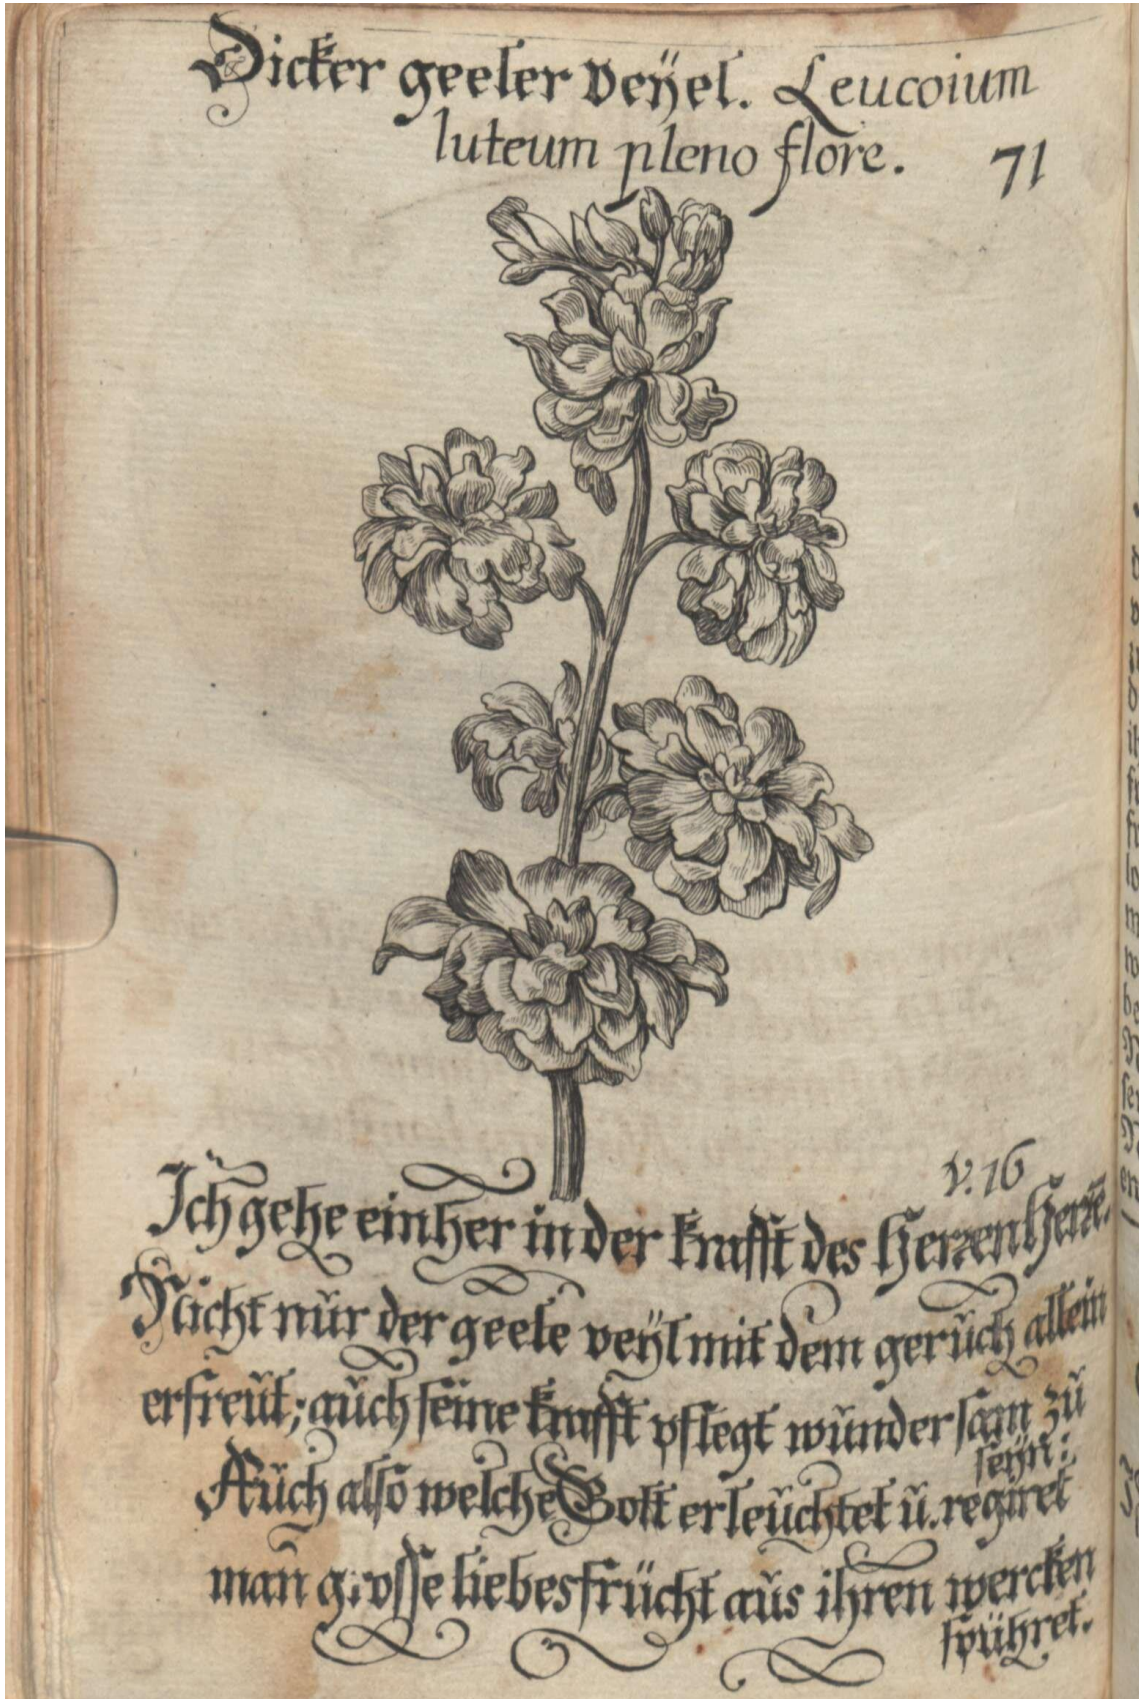 Dicker geeler veÿel. Leucoium
luteum pleno flore.
71
v. 16
Ich gehe einher in der krafft des Herzen Herzē.
Nicht nŭr der geele veÿl mit dem gerŭch allein
erfreŭt; aŭch seine krafft pflegt wŭndersam zŭ
seÿn:
Aŭch also welche Gott erleŭchtet ŭ. regiret
man grosse liebesfrücht aŭs ihren wercken
spühret.